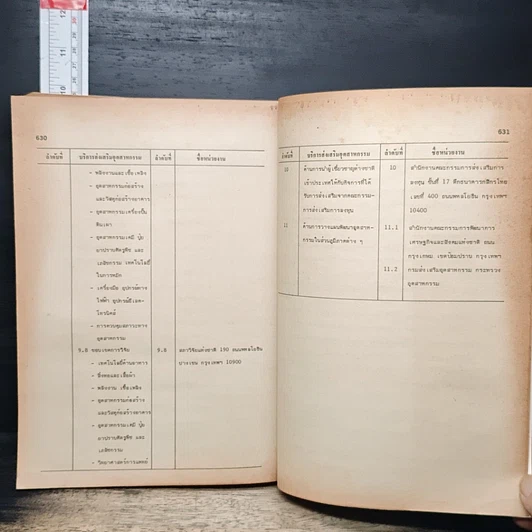 630
ลำดับที่ บริการส่งเสริมอุตสาหกรรม ลำดับที่ ชื่อหน่วยงาน
- พลังงานและเชื้อเพลิง
- อุตสาหกรรมก่อสร้าง
และวัสดุก่อสร้างอาคาร
- อุตสาหกรรมเครื่องปั้น
ดินเผา
- อุตสาหกรรมเคมี ปุ๋ย
ยาปราบศัตรูพืช และ
เภสัชกรรม เทคโนโลยี
ในการหมัก
- เครื่องมือ อุปกรณ์ทาง
ไฟฟ้า อุปกรณ์อีเลค-
โทรนิคส์
- การควบคุมสภาวะทาง
อุตสาหกรรม
9.8 ขอบเขตการวิจัย 9.8 สภาวิจัยแห่งชาติ 196 ถนนพหลโยธิน
- เทคโนโลยีด้านอาหาร บางเขน กรุงเทพฯ 10900
- สิ่งทอและเสื้อผ้า
- พลังงาน เชื้อเพลิง
- อุตสาหกรรมก่อสร้าง
และวัสดุก่อสร้างอาคาร
- อุตสาหกรรมเคมี ปุ๋ย
ยาปราบศัตรูพืช และ
เภสัชกรรม
- วิทยาศาสตร์การแพทย์
631
ลำดับที่ บริการส่งเสริมอุตสาหกรรม ลำดับที่ ชื่อหน่วยงาน
10 ด้านการนำผู้เชี่ยวชาญต่างชาติ 10 สำนักงานคณะกรรมการส่งเสริมการ
เข้าประเทศให้กับกิจการที่ได้ ลงทุน ชั้นที่ 17 ตึกธนาคารกสิกรไทย
รับการส่งเสริมจากคณะกรรม- เลขที่ 400 ถนนพหลโยธิน กรุงเทพฯ
การส่งเสริมการลงทุน 10400
11 ด้านการวางแผนพัฒนาอุตสาห- 11.1 สำนักงานคณะกรรมการพัฒนาการ
กรรมในส่วนภูมิภาคต่าง ๆ เศรษฐกิจและสังคมแห่งชาติ ถนน
กรุงเกษม เขตป้อมปราบ กรุงเทพฯ
11.2 กรมส่งเสริมอุตสาหกรรม กระทรวง
อุตสาหกรรม
12
11
10